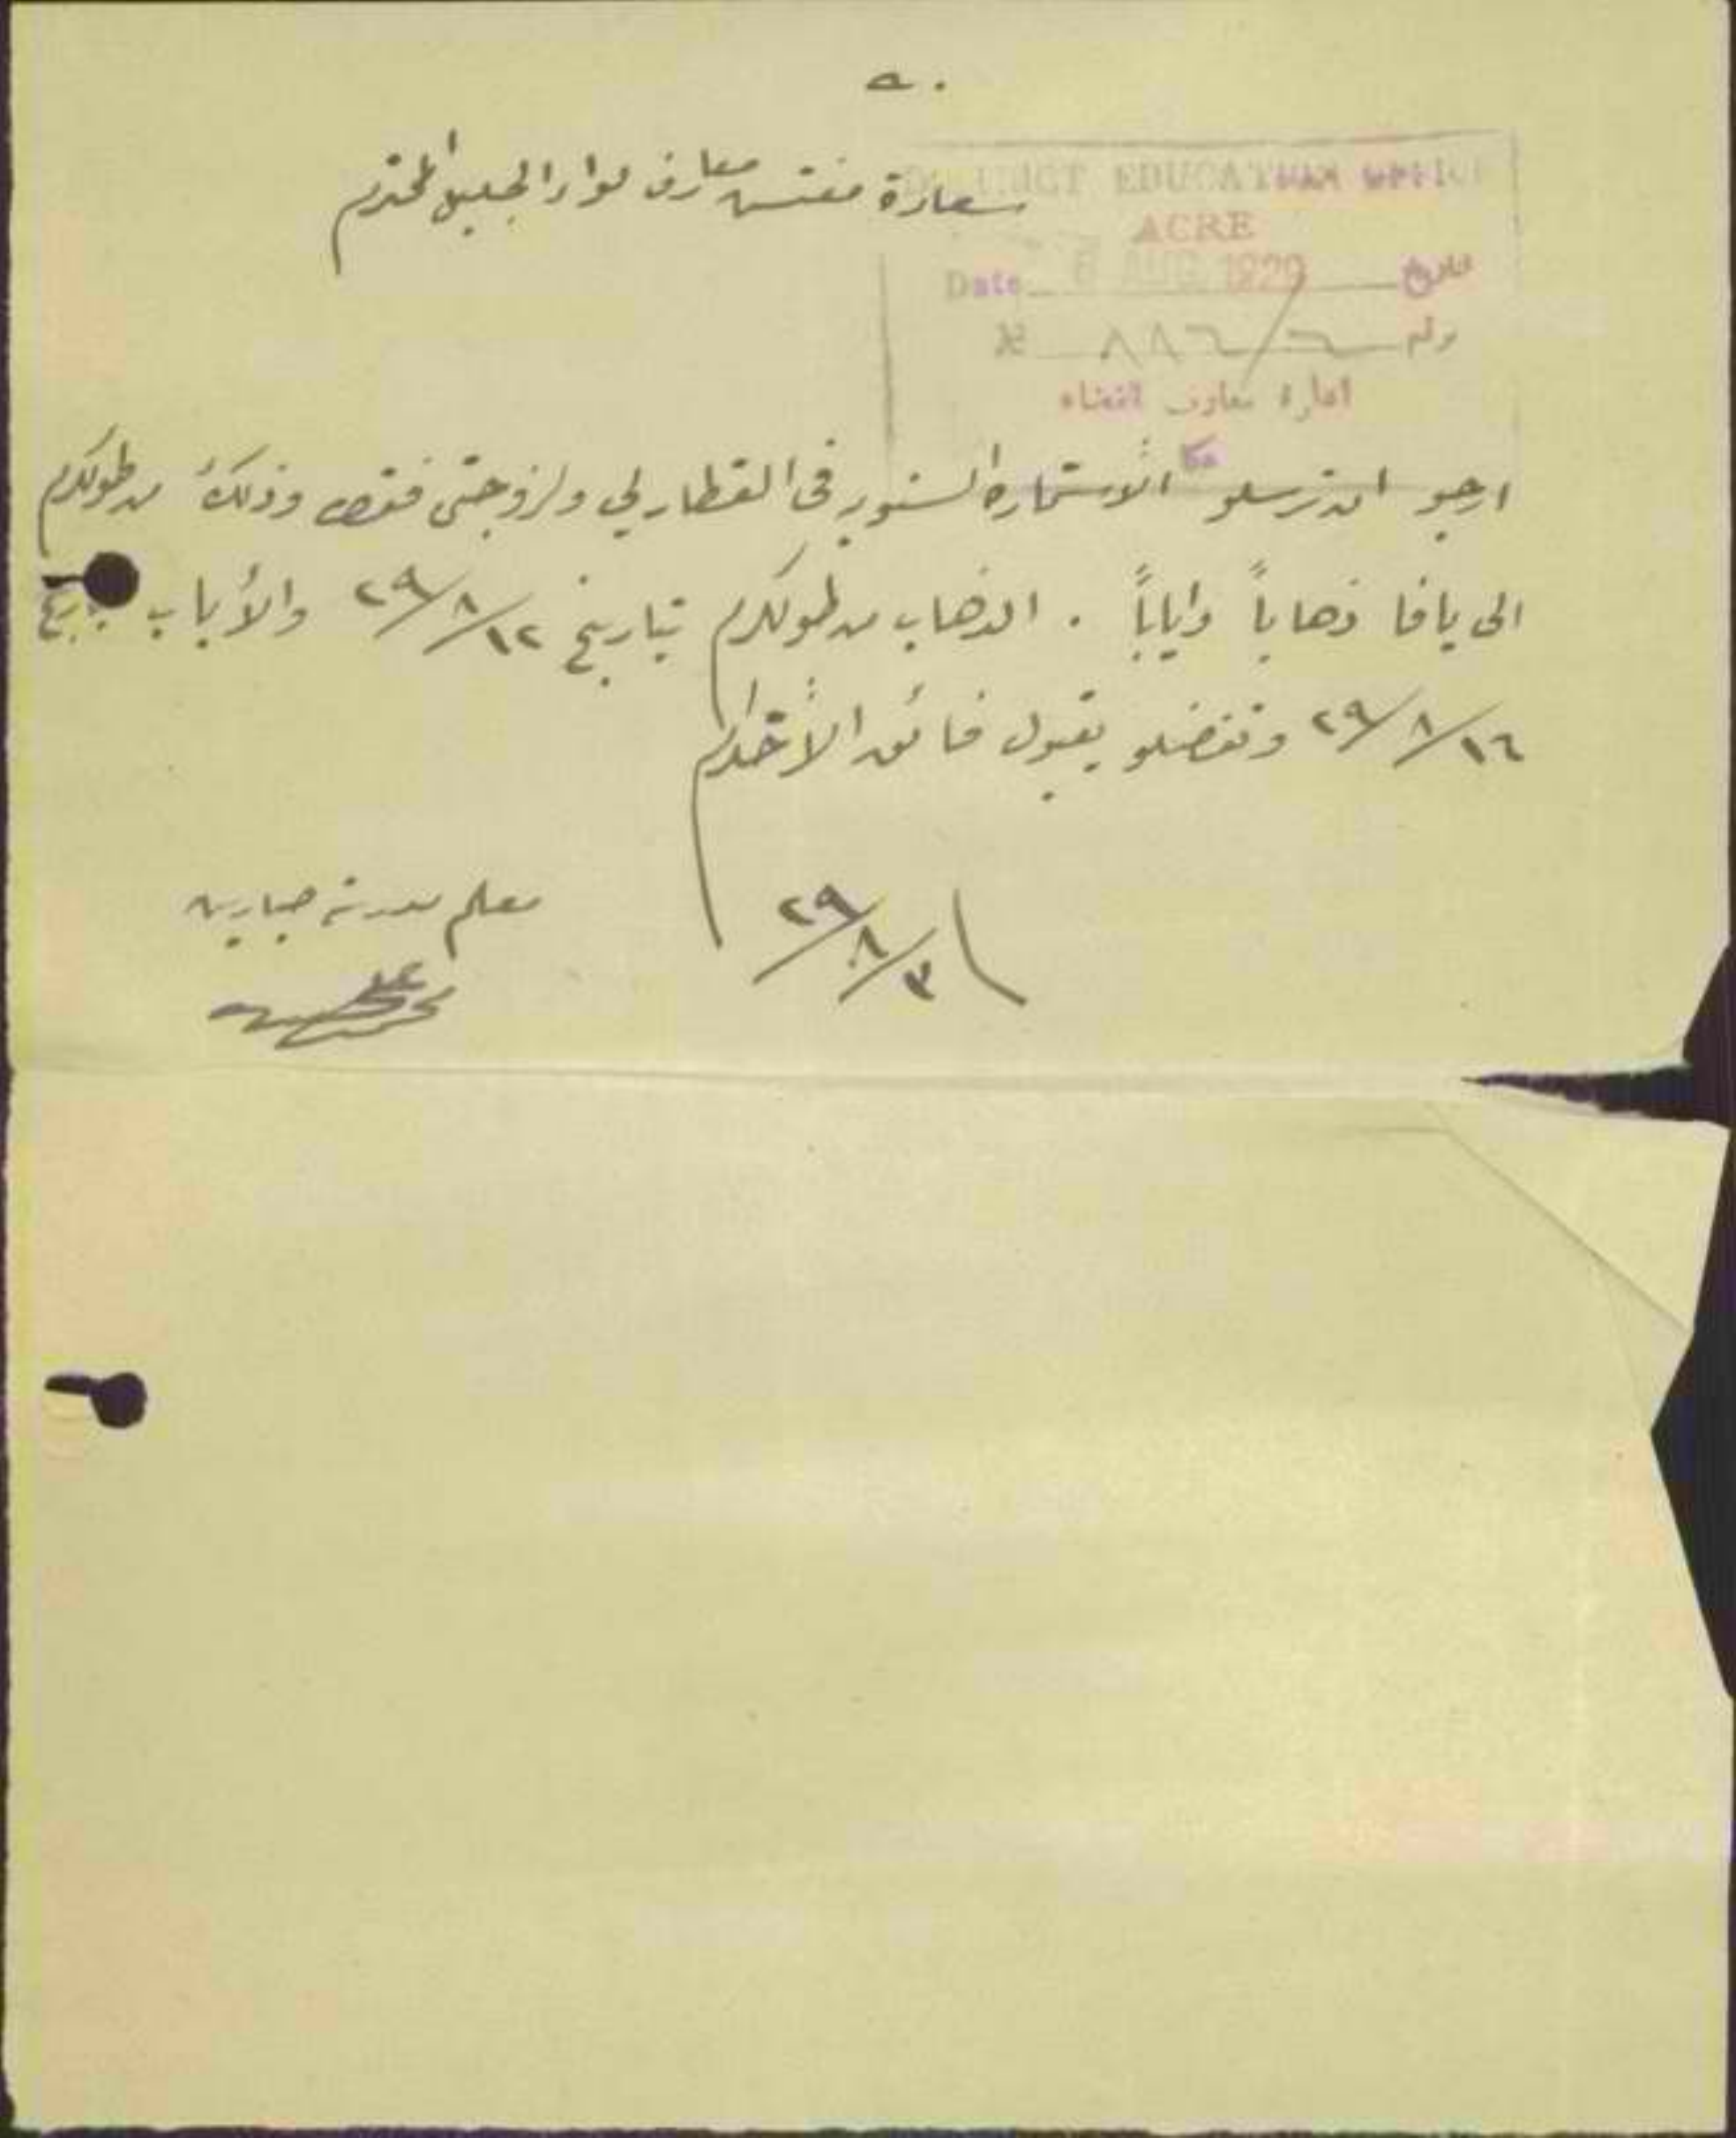 ٥٠
سعادة مفتش معارف لواء الجليل المحترم
DISTRICT EDUCATION OFFICE
ACRE
Date 6 AUG 1929 تاريخ
رقم ٨٨٦/٦
ادارة معارف القضاء
عكا
ارجو ان ترسلو الأستمارة السنوية في القطار لي ولزوجتي فقط وذلك من طولكرم
الى يافا ذهاباً واياباً . الذهاب من طولكرم بتاريخ ١٢/٨/٢٩ والأياب بتاريخ
١٦/٨/٢٩ وتفضلو بقبول فائق الأحترام
٣/٨/٢٩
معلم مدرسة صبارين